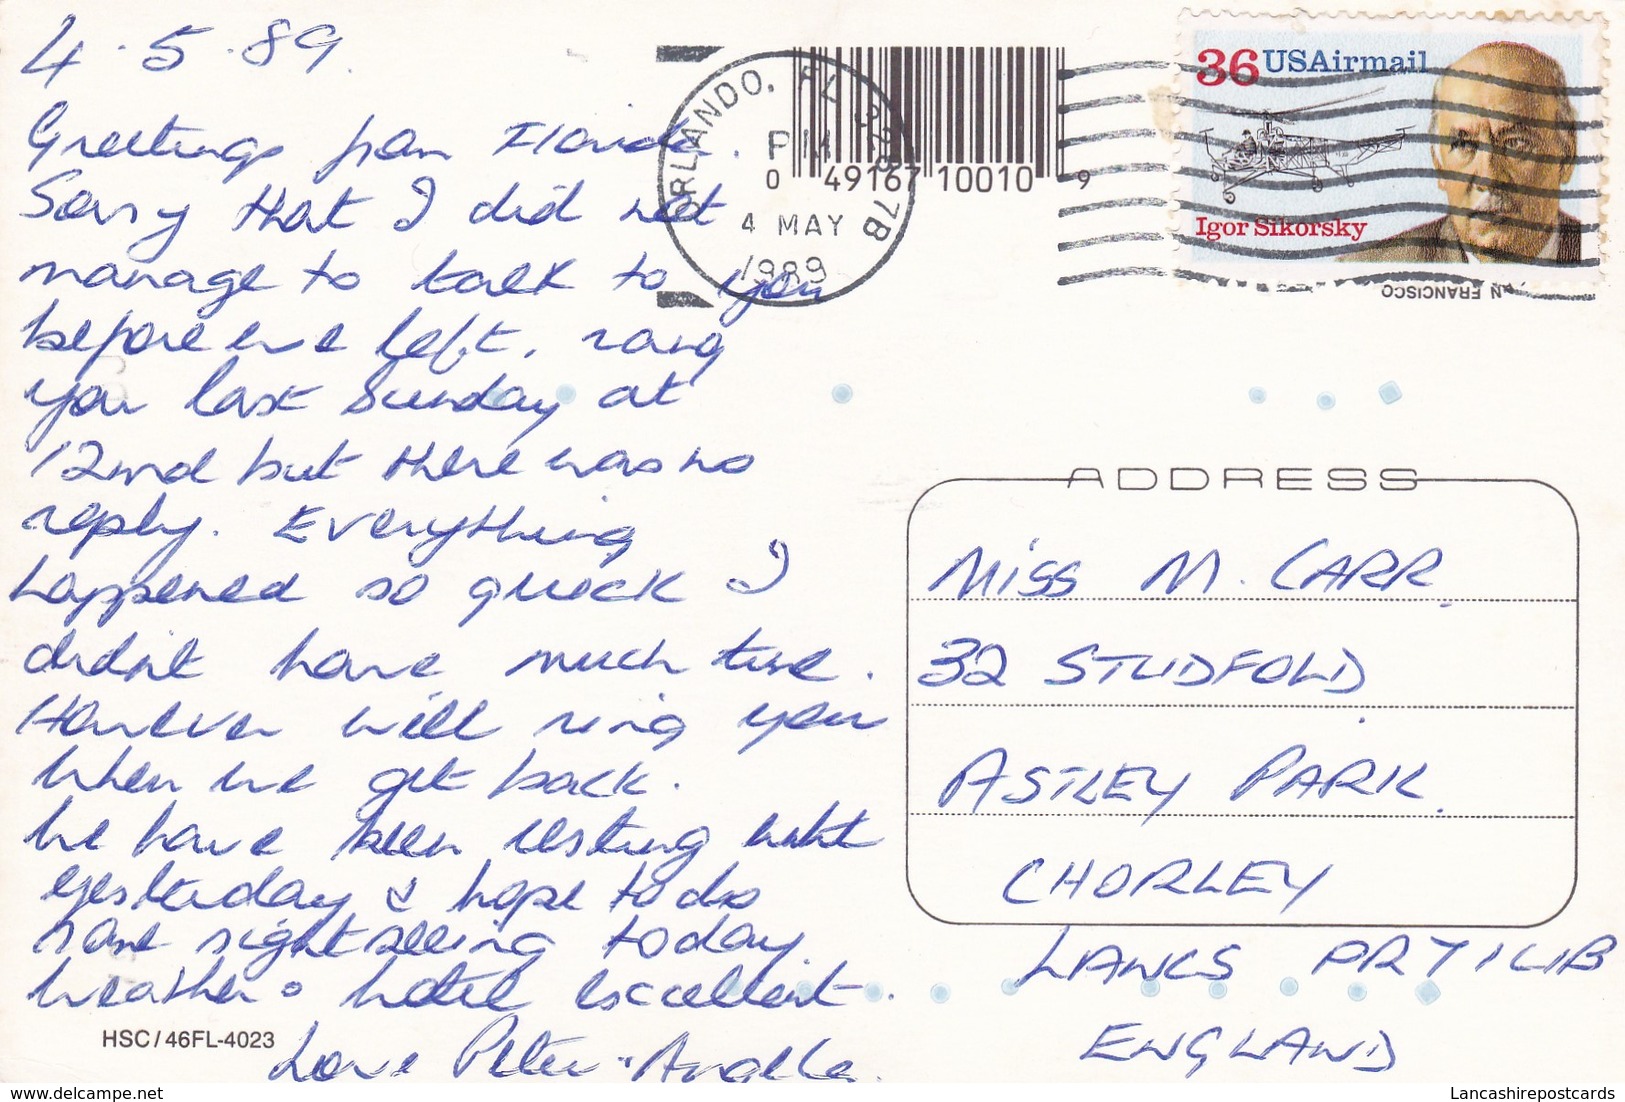 4.5.89.
Greetings from Florida.
Sorry that I did not
manage to talk to you
before we left, rang
you last Sunday at
but there was no
reply. Everything
happened so quick I
didn't have much time.
However will ring you
when we get back.
We have been resting
yesterday & hope to do
some sightseeing today.
Weather & hotel excellent.
Love Peter & Angela.
HSC/46FL-4023
ORLANDO, FL
PM
4 MAY
1989
7B
0 49167 10010 9
36 USAirmail
Igor Sikorsky
AN FRANCISCO
ADDRESS
MISS M. CARR,
32 STUDFOLD
ASTLEY PARK.
CHORLEY
LANCS PR7 1UB
ENGLAND
www.delcampe.net
Lancashirepostcards